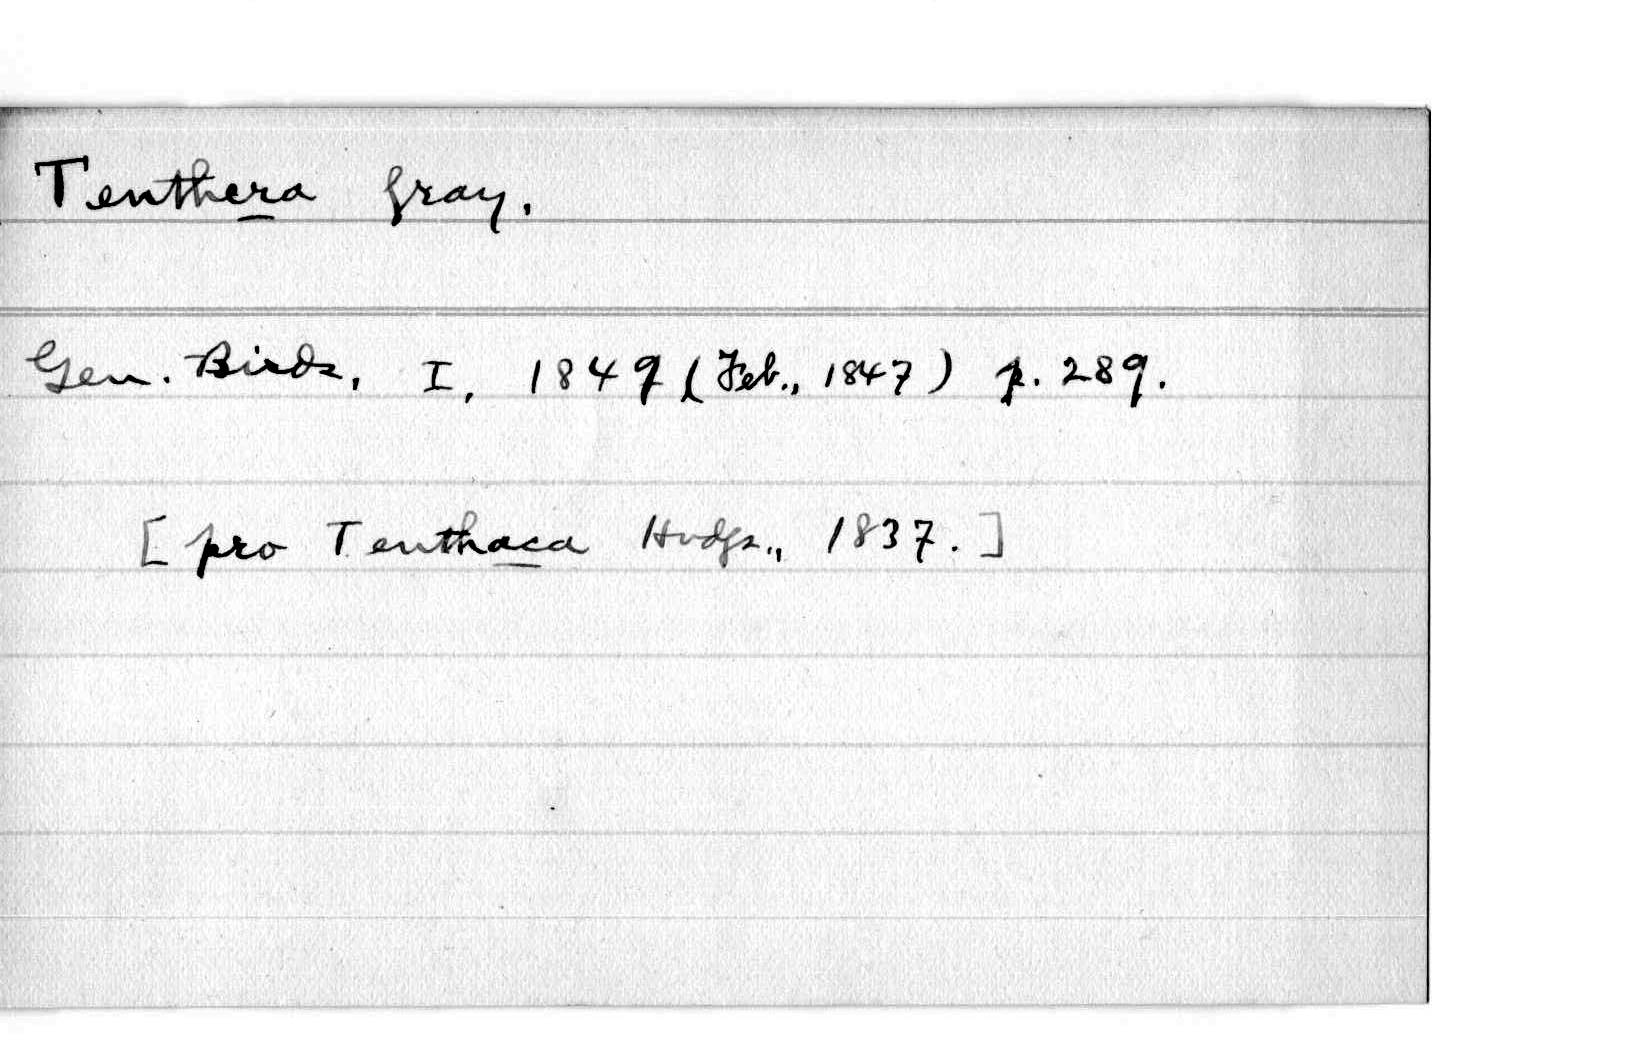 Tenthera Gray.
Gen. Birds, I, 1849 (Feb., 1847) p. 289.
[pro Tenthaca Hodgs., 1837.]